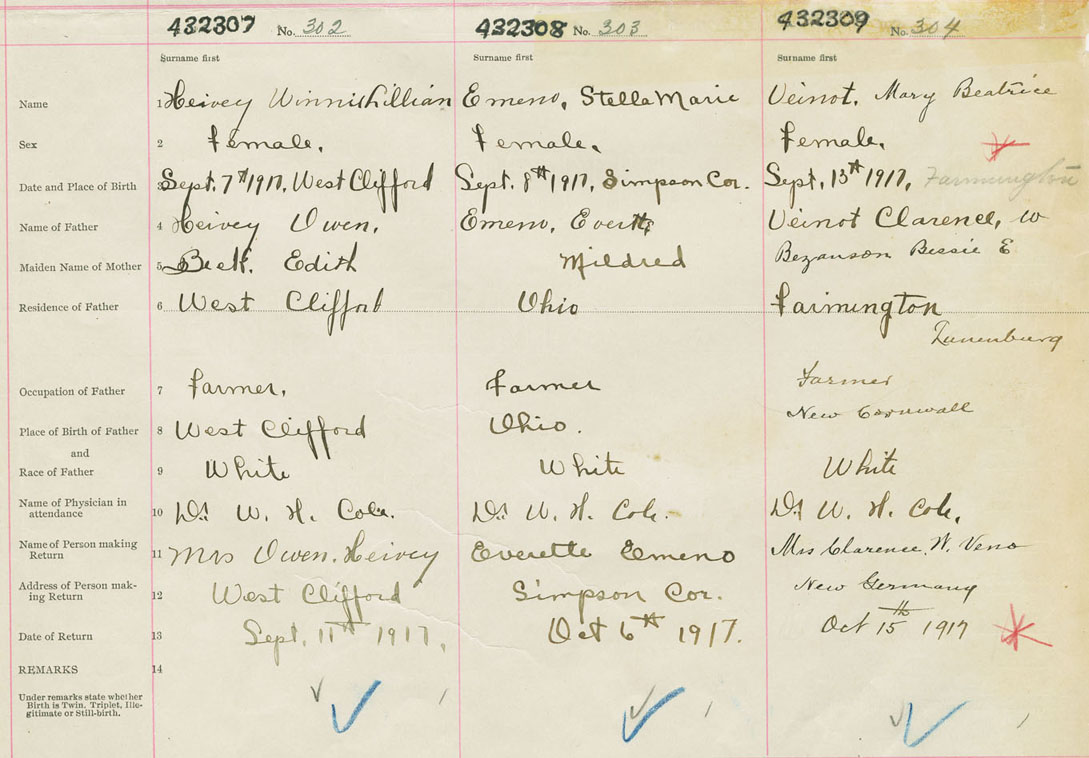 432307 No. 302 432308 No. 303 432309 No. 304
Surname first Surname first Surname first
Name 1 Heivey Winnis Lillian Emeno, Stella Marie Veinot, Mary Beatrice
Sex 2 Female. Female. Female.
Date and Place of Birth 3 Sept. 7th 1917, West Clifford Sept. 8th 1917, Simpson Cor. Sept, 13th 1917, Farmington
Name of Father 4 Heivey Owen. Emeno, Everett Veinot Clarence, W
Maiden Name of Mother 5 Edith Mildred Bezanson Bessie E
Residence of Father 6 West Clifford Ohio Farmington
Lunenburg
Occupation of Father 7 Farmer, Farmer Farmer
Place of Birth of Father 8 West Clifford Ohio. New Cornwall
and
Race of Father 9 White White White
Name of Physician in
attendance 10 Dr. W. H. Cole. Dr. W. H. Cole. Dr W. H. Cole.
Name of Person making
Return 11 Mrs Owen. Heivey Everette Emeno Mrs Clarence. W. Veno
Address of Person mak-
ing Return 12 West Clifford Simpson Cor. New Germany
Date of Return 13 Sept. 11th 1917, Oct 6th 1917. Oct 15th 1917
REMARKS 14
Under remarks state whether
Birth is Twin. Triplet, Ille-
gitimate or Still-birth.